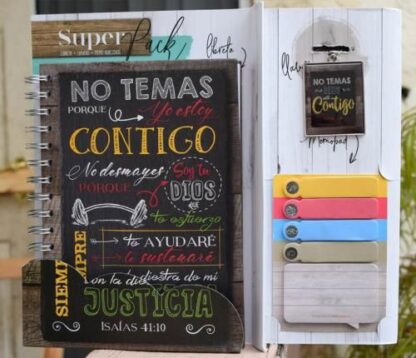 Super Pack
Libreta
Llavero
NO TEMAS
PORQUE Yo estoy
CONTIGO
No desmayes
PORQUE
Soy tu
DIOS
que
te esfuerzo
SIEMPRE
SIEMPRE
te AYUDARÉ
te sustentaré
con la diestra de mi
JUSTICIA
ISAÍAS 41:10
NO TEMAS
Contigo
Memopad